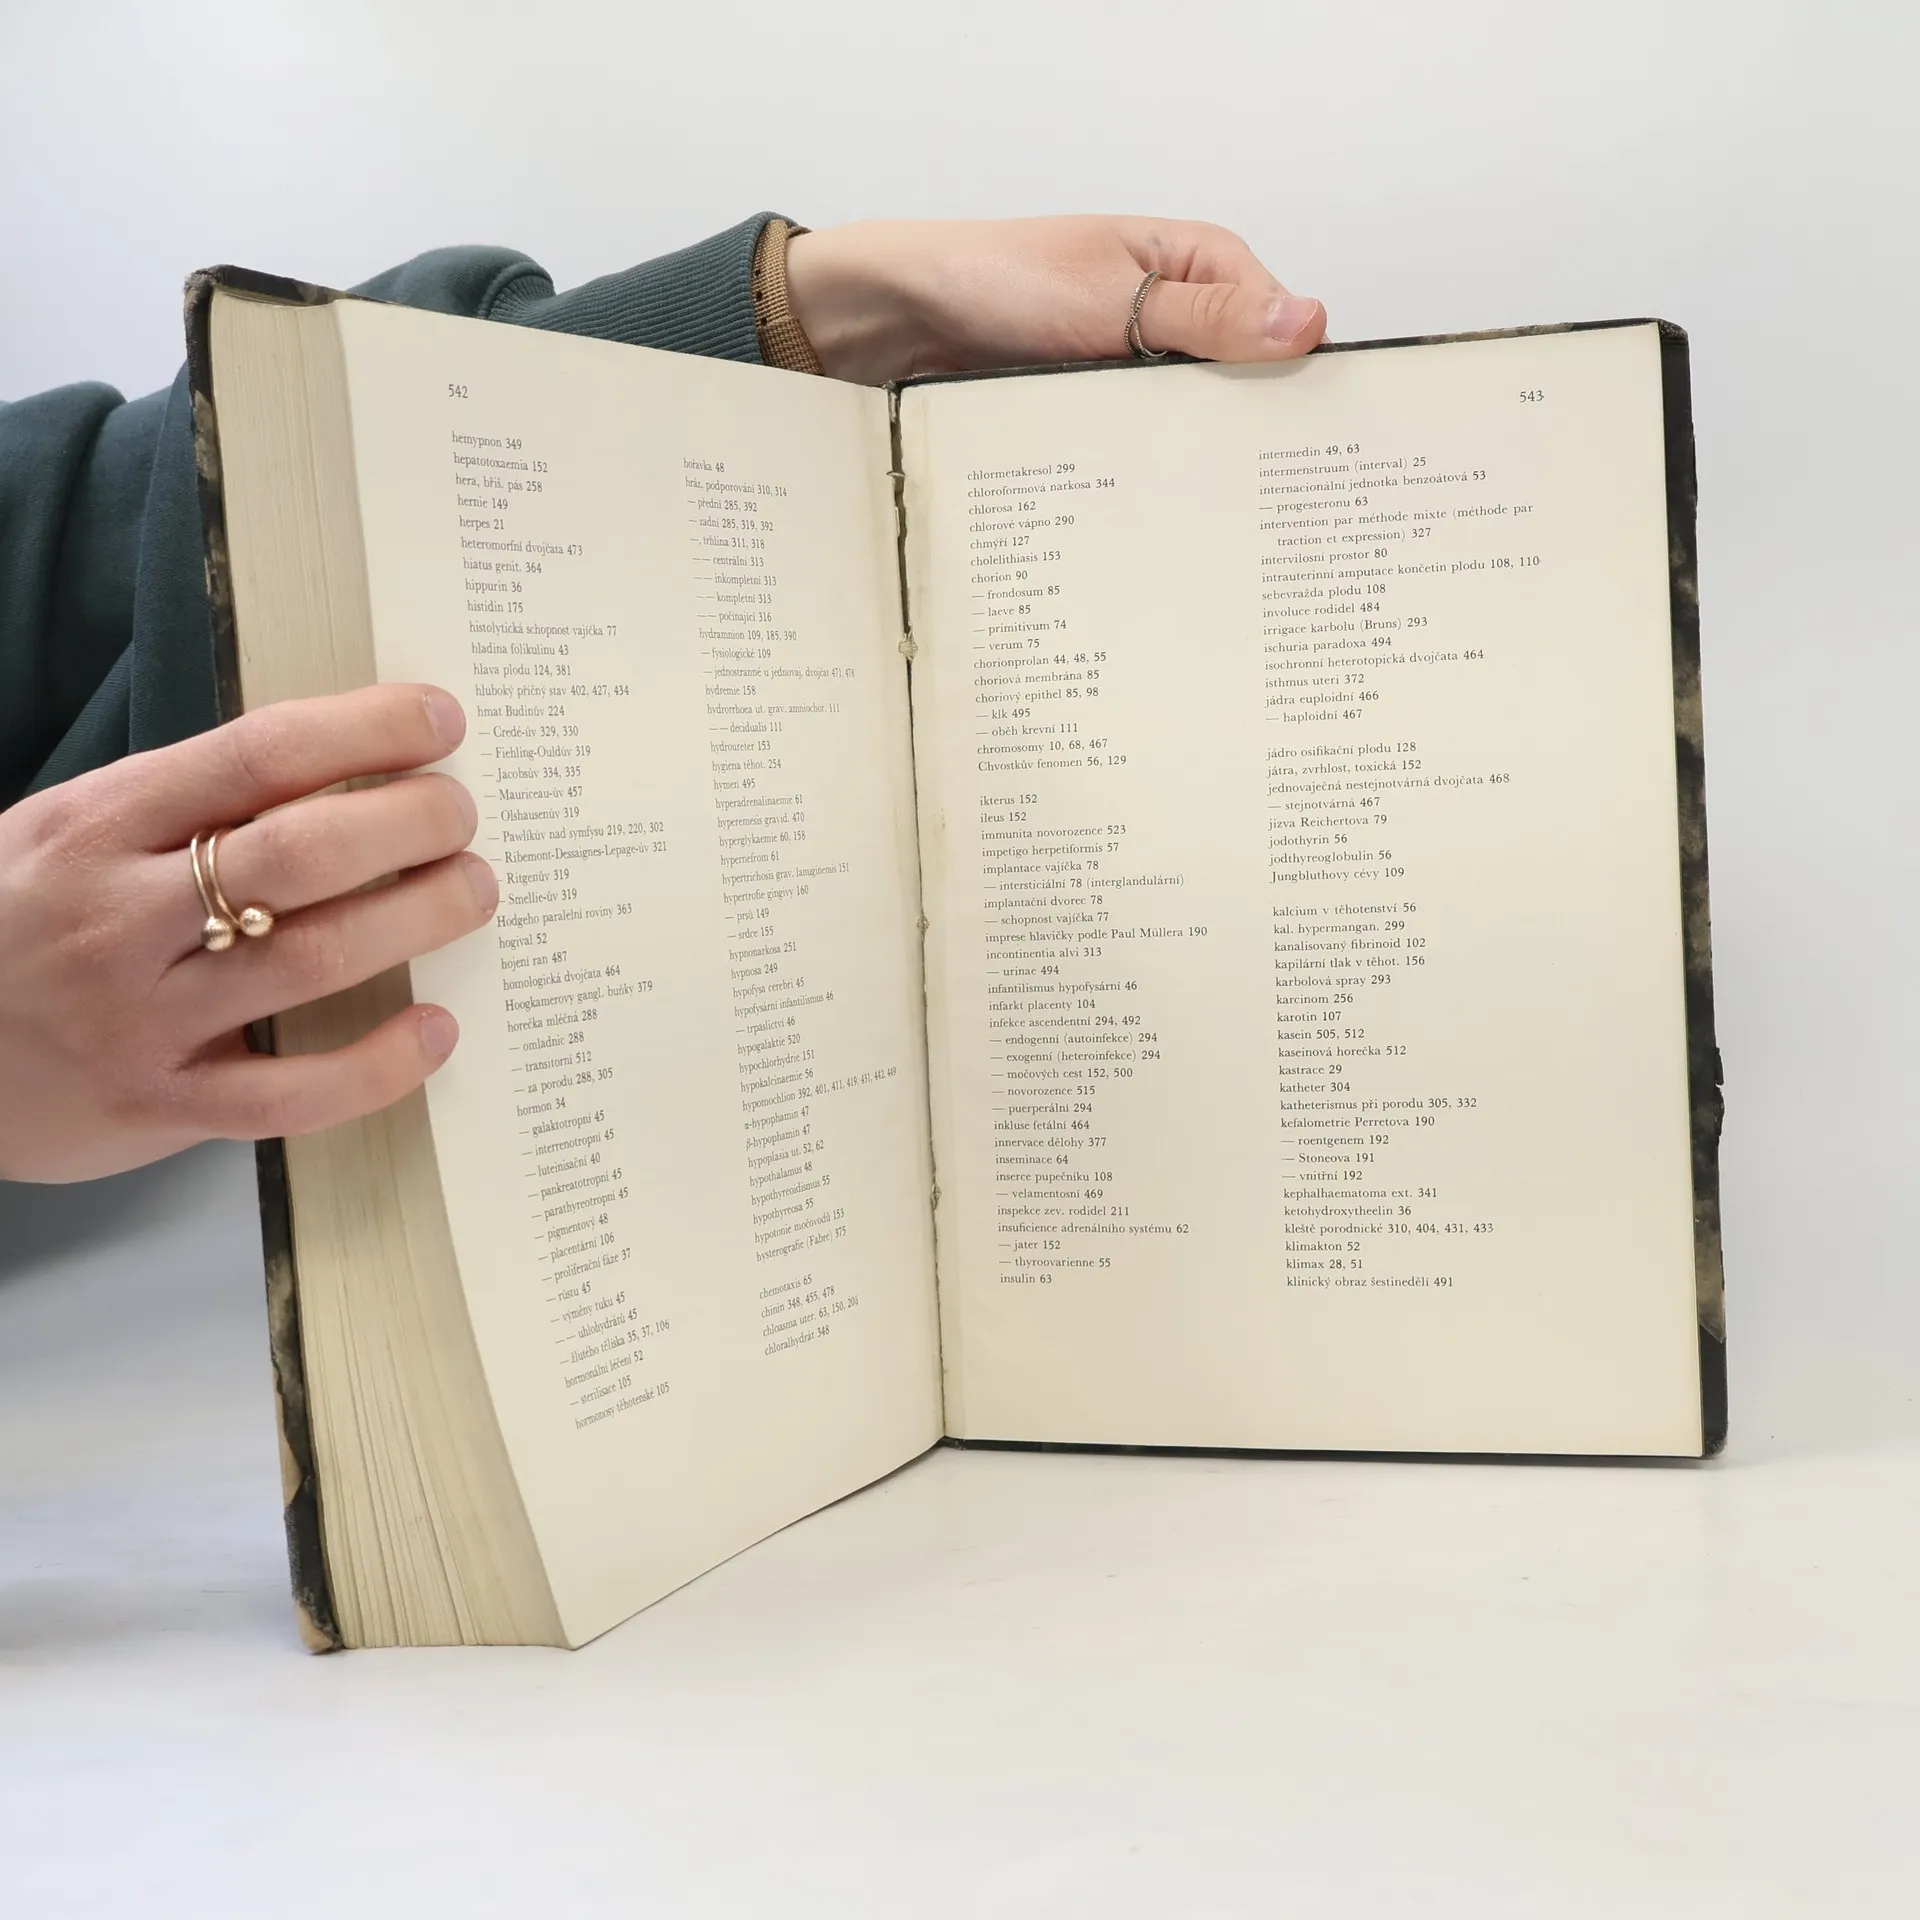 542
hemypnon 349
hepatotoxaemia 152
hera, břiš. pás 258
hernie 149
herpes 21
heteromorfní dvojčata 473
hiatus genit. 364
hippurin 36
histidin 175
histolytická schopnost vajíčka 77
hladina folikulinu 43
hlava plodu 124, 381
hluboký příčný stav 402, 427, 434
hmat Budinův 224
— Credé-ův 329, 330
— Fiehling-Ouldův 319
— Jacobsův 334, 335
— Mauriceau-ův 457
— Olshausenův 319
— Pawlíkův nad symfysu 219, 220, 302
— Ribemont-Dessaignes-Lepage-ův 321
— Ritgenův 319
— Smellie-ův 319
Hodgeho paralelní roviny 363
hogival 52
hojení ran 487
homologická dvojčata 464
Hoogkamerovy gangl. buňky 379
horečka mléčná 288
— omladnic 288
— transitorní 512
— za porodu 288, 305
hormon 34
— galaktotropní 45
— interrenotropní 45
— luteinisační 40
— pankreatotropní 45
— parathyreotropní 45
— pigmentový 48
— placentární 106
— proliferační fáze 37
— růstu 45
— výměny tuku 45
— — uhlohydrátů 45
— žlutého tělíska 35, 37, 106
hormonální léčení 52
— sterilisace 105
hormonosy těhotenské 105
hořavka 48
hráz, podporování 310, 314
— přední 285, 392
— zadní 285, 319, 392
—, trhlina 311, 318
— — centrální 313
— — inkompletní 313
— — kompletní 313
— — počínající 316
hydramnion 109, 185, 390
— fysiologické 109
— jednostranné u jednovaj. dvojčat 471, 478
hydremie 158
hydrorrhoea ut. grav. amniochor. 111
— — decidualis 111
hydroureter 153
hygiena těhot. 254
hymen 495
hyperadrenalinaemie 61
hyperemesis gravid. 470
hyperglykaemie 60, 158
hypernefrom 61
hypertrichosis grav. lanuginensis 151
hypertrofie gingivy 160
— prsů 149
— srdce 155
hypnonarkosa 251
hypnosa 249
hypofysa cerebri 45
hypofysární infantilismus 46
— trpaslictví 46
hypogalaktie 520
hypochlorhydrie 151
hypokalcinaemie 56
hypomochlion 392, 401, 411, 419, 431, 442, 449
α-hypophamin 47
β-hypophamin 47
hypoplasia ut. 52, 62
hypothalamus 48
hypothyreoidismus 55
hypothyreosa 55
hypotonie močovodů 153
hysterografie (Fabre) 375
chemotaxis 65
chinin 348, 455, 478
chloasma uter. 63, 150, 206
chloralhydrát 348
543
chlormetakresol 299
chloroformová narkosa 344
chlorosa 162
chlorové vápno 290
chmýří 127
cholelithiasis 153
chorion 90
— frondosum 85
— laeve 85
— primitivum 74
— verum 75
chorionprolan 44, 48, 55
choriová membrána 85
choriový epithel 85, 98
— klk 495
— oběh krevní 111
chromosomy 10, 68, 467
Chvostkův fenomen 56, 129
ikterus 152
ileus 152
immunita novorozence 523
impetigo herpetiformis 57
implantace vajíčka 78
— intersticiální 78 (interglandulární)
implantační dvorec 78
— schopnost vajíčka 77
imprese hlavičky podle Paul Müllera 190
incontinentia alvi 313
— urinae 494
infantilismus hypofysární 46
infarkt placenty 104
infekce ascendentní 294, 492
— endogenní (autoinfekce) 294
— exogenní (heteroinfekce) 294
— močových cest 152, 500
— novorozence 515
— puerperální 294
inkluse fetální 464
innervace dělohy 377
inseminace 64
inserce pupečníku 108
— velamentosní 469
inspekce zev. rodidel 211
insuficience adrenálního systému 62
— jater 152
— thyroovarienne 55
insulin 63
intermedin 49, 63
intermenstruum (interval) 25
internacionální jednotka benzoátová 53
— progesteronu 63
intervention par méthode mixte (méthode par
traction et expression) 327
intervilosní prostor 80
intrauterinní amputace končetin plodu 108, 110
sebevražda plodu 108
involuce rodidel 484
irrigace karbolu (Bruns) 293
ischuria paradoxa 494
isochronní heterotopická dvojčata 464
isthmus uteri 372
jádra euploidní 466
— haploidní 467
jádro osifikační plodu 128
játra, zvrhlost, toxická 152
jednovaječná nestejnotvárná dvojčata 468
— stejnotvárná 467
jizva Reichertova 79
jodothyrin 56
jodthyreoglobulin 56
Jungbluthovy cévy 109
kalcium v těhotenství 56
kal. hypermangan. 299
kanalisovaný fibrinoid 102
kapilární tlak v těhot. 156
karbolová spray 293
karcinom 256
karotin 107
kasein 505, 512
kaseinová horečka 512
kastrace 29
katheter 304
katheterismus při porodu 305, 332
kefalometrie Perretova 190
— roentgenem 192
— Stoneova 191
— vnitřní 192
kephalhaematoma ext. 341
ketohydroxytheelin 36
kleště porodnické 310, 404, 431, 433
klimakton 52
klimax 28, 51
klinický obraz šestinedělí 491